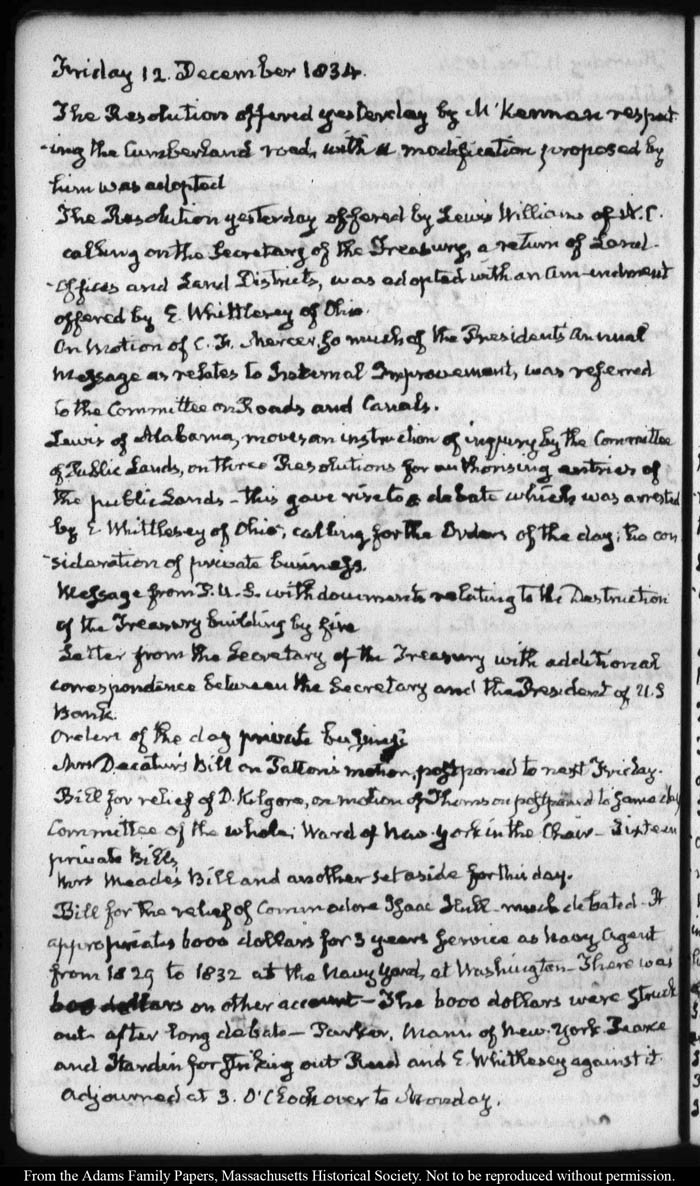 Friday 12. December 1834.
The Resolution offered yesterday by M'Kennan respect
-ing the Cumberland road, with a modification proposed by
him was adopted
The Resolution yesterday offered by Lewis Williams of N.C.
calling on the Secretary of the Treasury, a return of Land-
-Offices and Land Districts, was adopted with an amendment
offered by E. Whittlesey of Ohio.
On motion of C. F. Mercer, so much of the President's annual
Message as relates to Internal Improvement, was referred
to the Committee on Roads and Canals.
Lewis of Alabama, moves an instruction of inquiry by the Committee
of Public Lands, on three Resolutions for authorising entries of
the public Lands - this gave rise to a debate which was arrested
by E Whittlesey of Ohio, calling for the Orders of the day; the con
-sideration of private business.
Message from P. U. S. with documents relating to the Destruction
of the Treasury building by fire
Letter from the Secretary of the Treasury with additional
correspondence between the Secretary and the President of U.S
Bank.
Orders of the day private business
Mrs Decatur's Bill on Patton's motion, postponed to next Friday.
Bill for relief of D. Kilgore, on motion of Thomson postponed to same day
Committee of the whole; Ward of New-York in the Chair - Sixteen
private Bills,
Mrs Meade's Bill and another set aside for this day.
Bill for the relief of Commodore Isaac Hull - much debated - It
appropriates 6000 dollars for 3 years service as Navy Agent
from 1829 to 1832 at the Navy Yard, at Washington - There was
dollars on other account - The 6000 dollars were struck
out after long debate - Parker, Mann of New-York Pearce
and Hardin for striking out Reed and E. Whittlesey against it
Adjourned at 3. O'Clock over to Monday.
From the Adams Family Papers, Massachusetts Historical Society. Not to be reproduced without permission.